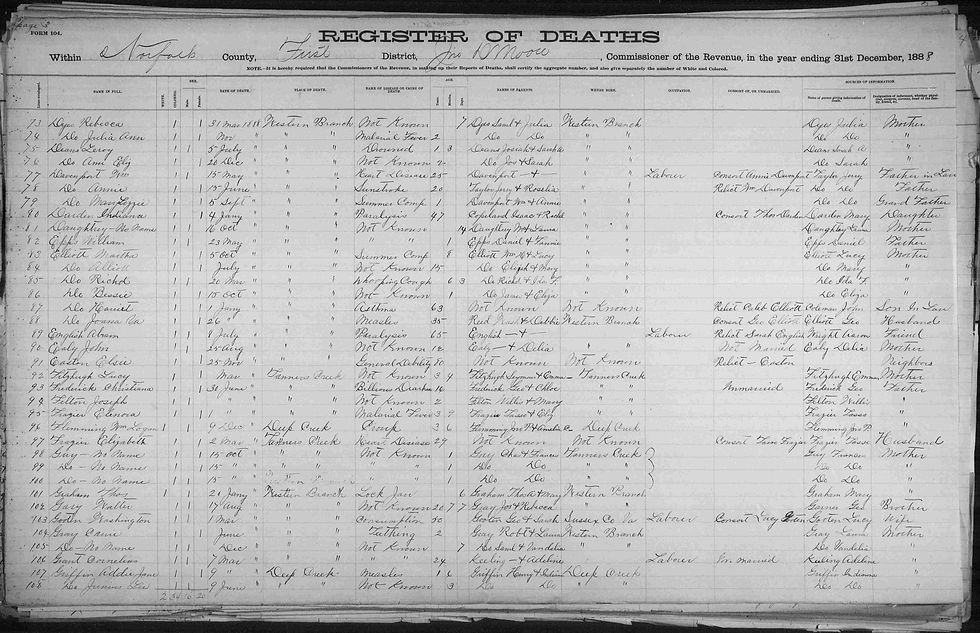 Page 5
FORM 104.
REGISTER OF DEATHS
Within Norfolk County, First District, Jno D Moore, Commissioner of the Revenue, in the year ending 31st December, 1888
NOTE.—It is hereby required that the Commissioners of the Revenue, in making up their Reports of Deaths, shall certify the aggregate number, and also give separately the number of White and Colored.
SEX. AGE. SOURCES OF INFORMATION.
NAME IN FULL. WHITE. COLORED. Male. Female. DATE OF DEATH. PLACE OF DEATH. NAME OF DISEASE OR CAUSE OF DEATH. Years. Months. Days. NAMES OF PARENTS. WHERE BORN. OCCUPATION. CONSORT OF, OR UNMARRIED. Name of person giving information of death.
73 Dyes Rebecca 1 1 31 Mar 1888 Western Branch Not Known 7 Dyes Saml & Julia Western Branch Dyes Julia Mother
74 Do Julia Ann 1 1 Nov " " " Malarial Fever 2 Do Do " " Do Do "
75 Deans Leroy 1 1 5 July " " " Drowned 1 3 Deans Josiah & Sarah " " Deans Sarah A "
76 Do Ann Eliz 1 1 20 Dec " " " Not Known 2 Do Jos & Sarah " " Do Sarah "
77 Davenport Wm 1 1 15 May " " " Heart Disease 25 Davenport — & — " " Labour Consort Annie Davenport Taylor Jerry Father in Law
78 Do Annie 1 1 15 June " " " Sunstroke 20 Taylor Jerry & Roselia " " Relict Wm Davenport Do Do Father
79 Do Mary Lizzie 1 1 5 Sept " " " Summer Comp 1 Davenport Wm & Annie " " Do Do Grand Father
80 Darden Indiana 1 1 4 Jany " " " Paralysis 47 Copeland Isaac & " " Consort Thos Darden Darden Mary Daughter
81 Daughtrey—No Name 1 1 16 Oct " " " Not Known 14 Daughtrey Wm & Laura " " Daughtrey Laura Mother
82 Epps William 1 1 23 May " " " " " 1 Epps Daniel & Fannie " " Epps Daniel Father
83 Elliott Martha 1 1 15 Oct " " " Summer Comp 8 Elliott Wm H & Lucy " " Elliott Lucy Mother
84 Do 1 1 July " " " Not Known 15 Do Elijah & Mary " " Do Mary "
85 Do Richd 1 1 20 Mar " " " Whooping Cough 6 3 Do Richd & Ida F. " " Do Ida F. "
86 Do Bessie 1 1 15 Oct " " " Not Known 1 Do James & Eliza " " Do Eliza "
87 Do Harriet 1 1 1 Jany " " " Asthma 63 Not Known Not Known Relict Caleb Elliott Coleman John Son In Law
88 Do Joana 1 1 26 " " " " Measles 35 Reed Nash & Debbie Western Branch Consort Geo Elliott Elliott Geo Husband
89 English Abram 1 1 1 July " " " Paralysis 65 English — & — " " Labour Relict Sarah English Wright Aaron Friend
90 Eady John 1 1 25 Aug " " " Not Known 12 Eady — & Delia " " Not Married Eady Delia Mother
91 Easton Elsie 1 1 25 Nov " " " General Debility 80 Not Known Not Known Relict — Easton Neighbors
92 Fitzhugh Lucy 1 1 1 Mar " Tanners Creek Not Known 3 4 Fitzhugh Seymour & Emma Tanners Creek Fitzhugh Emma Mother
93 Frederick Christiana 1 1 31 June " " " Billious Diarhea 16 Frederick Geo & Chloe " " Unmarried Frederick Geo Father
94 Felton Joseph 1 1 " " " " " Not Known 2 Felton Willis & Mary " " Felton Willis "
95 Frazier Elenora 1 1 1 " " " " Malarial Fever 3 9 Frazier Tasso & Eliz " " Frazier Tasso "
96 Flemming Wm Logan 1 1 9 Dec " Deep Creek Croup 3 6 Flemming Jno P & Deep Creek Flemming Jno P "
97 Frazier Elizabeth 1 1 2 Mar " Tanners Creek Heart Disease 29 Not Known Not Known Consort Frazier Frazier Tasso Husband
98 Guy—No Name 1 1 15 Oct " " " Not Known 1 Guy Chas & Frances Tanners Creek Guy Frances Mother
99 Do—No Name 1 1 15 " " " " " " 1 Do Do " " Do Do "
100 Do—No Name 1 1 15 " " " " " " 1 Do Do " " Do Do "
101 Graham Thos 1 1 20 Jany " Western Branch Lock Jaw 6 Graham Thos & Mary Western Branch Graham Mary "
102 Gary Walter 1 1 17 Aug " " " Not Known 20 7 7 Gray Jos & Rebecca " " Garner Geo Brother
103 Gooten Washington 1 1 1 Mar " " " Consumption 30 Gooten Geo & Sarah Sussex Co Va Labour Consort Lucy Gooten Gooten Lucy Wife
104 Gray Carrie 1 1 June " " " Teething 2 Gray Robt & Laura Western Branch Gray Laura Mother
105 Do—No Name 1 1 Dec " " " Not Known 7 Do Saml & Vandelia " " Do Vandelia "
106 Grant Cornelius 1 1 7 Mar " " " " " 24 Keeling — & Adeline " " Labour Un married Keeling Adeline "
107 Griffin Addie Jane 1 1 9 " " Deep Creek Measles 1 6 Griffin Henry & Indiana Deep Creek Griffin Indiana "
108 Do Jennie 1 1 9 June " " " Not Known 3 Do Do " " Do Do "
2 34 16 20